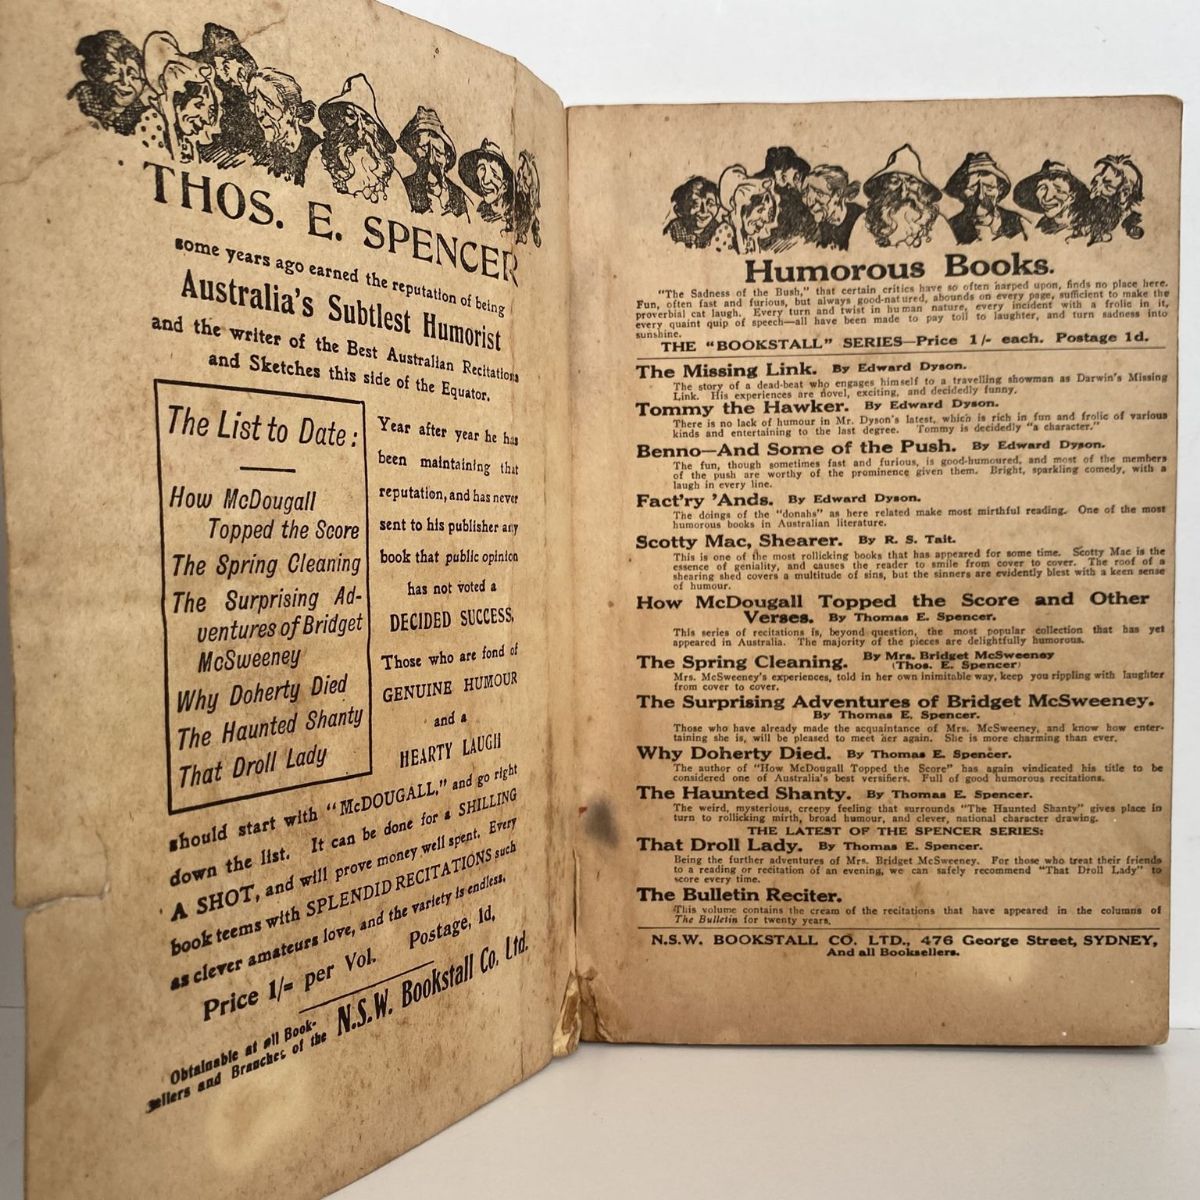 THOS. E. SPENCER
some years ago earned the reputation of being
Australia's Subtlest Humorist
and the writer of the Best Australian Recitations
and Sketches this side of the Equator.
The List to Date:
How McDougall
Topped the Score
The Spring Cleaning
The Surprising Ad-
ventures of Bridget
McSweeney
Why Doherty Died
The Haunted Shanty
That Droll Lady
Year after year he has
been maintaining that
reputation, and has never
sent to his publisher any
book that public opinion
has not voted a
DECIDED SUCCESS.
Those who are fond of
GENUINE HUMOUR
and a
HEARTY LAUGH
should start with "McDOUGALL," and go right
down the list. It can be done for a SHILLING
A SHOT, and will prove money well spent. Every
book teems with SPLENDID RECITATIONS such
as clever amateurs love, and the variety is endless.
Price 1/= per Vol. Postage, 1d.
Obtainable at all Book-
sellers and Branches of the N.S.W. Bookstall Co. Ltd.
Humorous Books.
"The Sadness of the Bush," that certain critics have so often harped upon, finds no place here.
Fun, often fast and furious, but always good-natured, abounds on every page, sufficient to make the
proverbial cat laugh. Every turn and twist in human nature, every incident with a frolic in it,
every quaint quip of speech—all have been made to pay toll to laughter, and turn sadness into
sunshine.
THE "BOOKSTALL" SERIES—Price 1/- each. Postage 1d.
The Missing Link. By Edward Dyson.
The story of a dead-beat who engages himself to a travelling showman as Darwin's Missing
Link. His experiences are novel, exciting, and decidedly funny.
Tommy the Hawker. By Edward Dyson.
There is no lack of humour in Mr. Dyson's latest, which is rich in fun and frolic of various
kinds and entertaining to the last degree. Tommy is decidedly "a character."
Benno—And Some of the Push. By Edward Dyson.
The fun, though sometimes fast and furious, is good-humoured, and most of the members
of the push are worthy of the prominence given them. Bright, sparkling comedy, with a
laugh in every line.
Fact'ry 'Ands. By Edward Dyson.
The doings of the "donahs" as here related make most mirthful reading. One of the most
humorous books in Australian literature.
Scotty Mac, Shearer. By R. S. Tait.
This is one of the most rollicking books that has appeared for some time. Scotty Mac is the
essence of geniality, and causes the reader to smile from cover to cover. The roof of a
shearing shed covers a multitude of sins, but the sinners are evidently blest with a keen sense
of humour.
How McDougall Topped the Score and Other
Verses. By Thomas E. Spencer.
This series of recitations is, beyond question, the most popular collection that has yet
appeared in Australia. The majority of the pieces are delightfully humorous.
The Spring Cleaning. By Mrs. Bridget McSweeney
(Thos. E. Spencer)
Mrs. McSweeney's experiences, told in her own inimitable way, keep you rippling with laughter
from cover to cover.
The Surprising Adventures of Bridget McSweeney.
By Thomas E. Spencer.
Those who have already made the acquaintance of Mrs. McSweeney, and know how enter-
taining she is, will be pleased to meet her again. She is more charming than ever.
Why Doherty Died. By Thomas E. Spencer.
The author of "How McDougall Topped the Score" has again vindicated his title to be
considered one of Australia's best versifiers. Full of good humorous recitations.
The Haunted Shanty. By Thomas E. Spencer.
The weird, mysterious, creepy feeling that surrounds "The Haunted Shanty" gives place in
turn to rollicking mirth, broad humour, and clever, national character drawing.
THE LATEST OF THE SPENCER SERIES:
That Droll Lady. By Thomas E. Spencer.
Being the further adventures of Mrs. Bridget McSweeney. For those who treat their friends
to a reading or recitation of an evening, we can safely recommend "That Droll Lady" to
score every time.
The Bulletin Reciter.
This volume contains the cream of the recitations that have appeared in the columns of
The Bulletin for twenty years.
N.S.W. BOOKSTALL CO. LTD., 476 George Street, SYDNEY,
And all Booksellers.